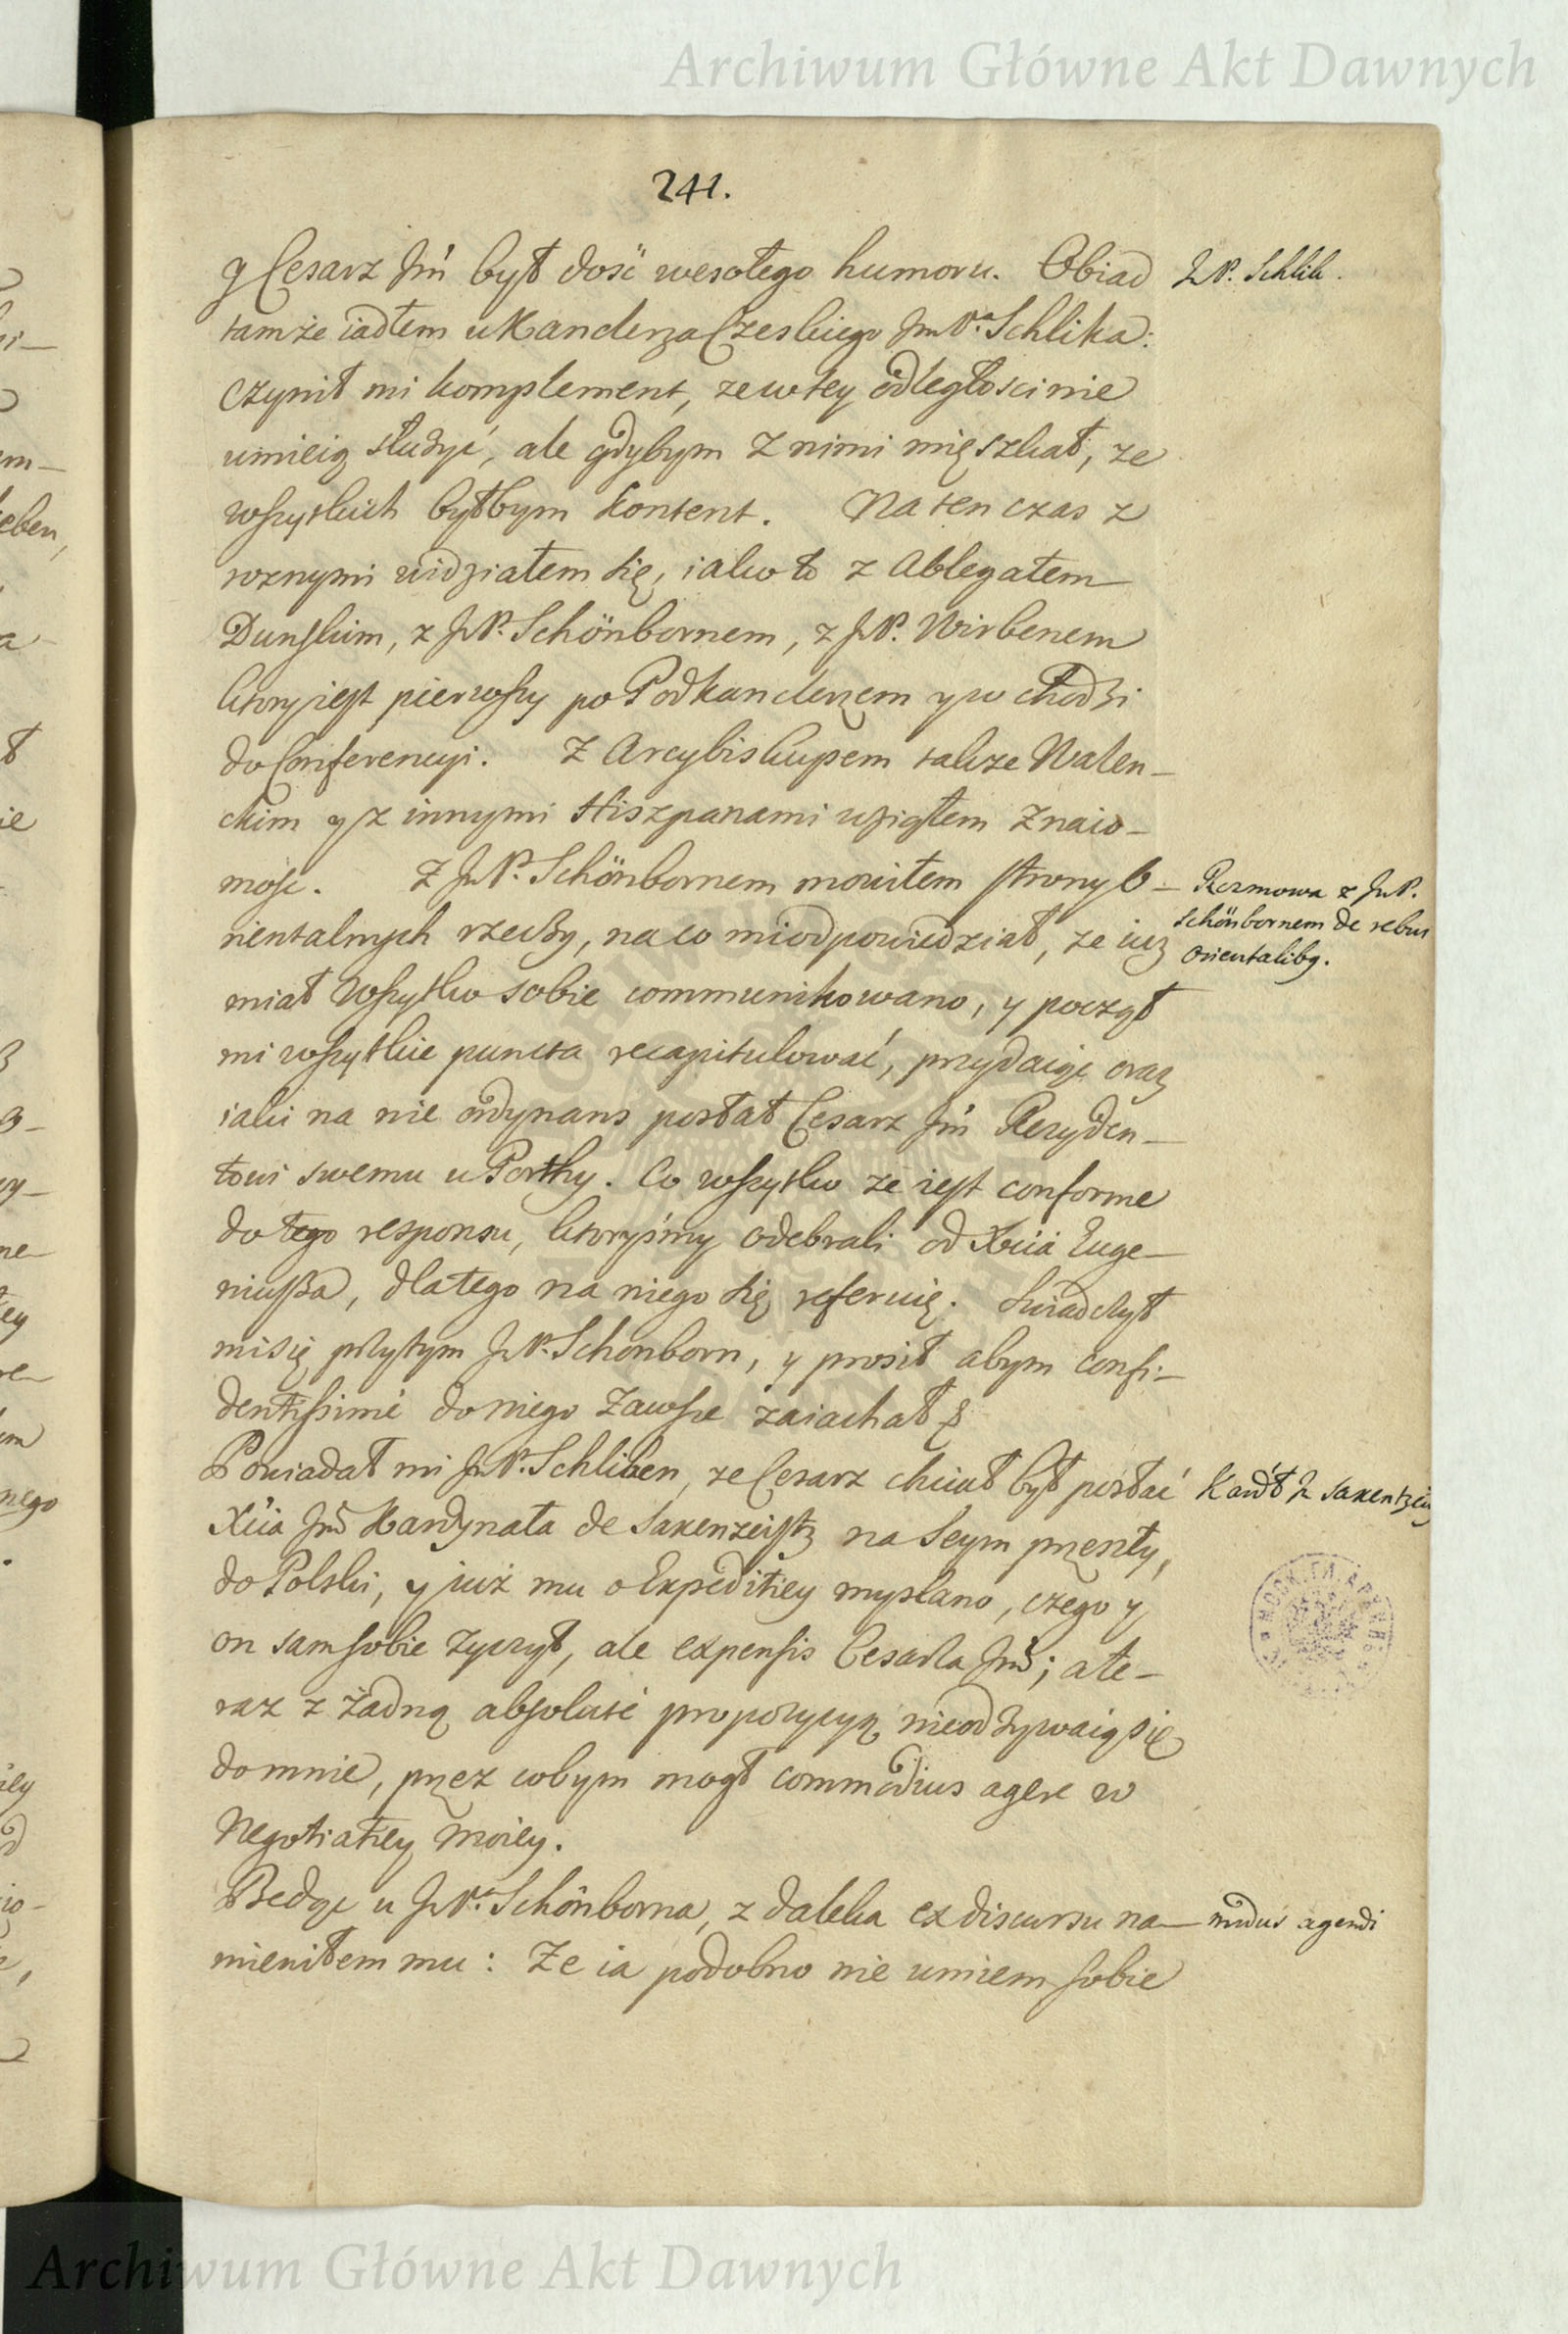 Archiwum Główne Akt Dawnych
241.
y Cesarz Jm̄ był dość wesołego humoru. Obiad
J P. Schlik.
tamże iadłem u Kanclerza Czeskiego JmPa Schlika:
czynił mi komplement, ze w tey odległosci nie
umieią służyć, ale gdybym z nimi mięszkał, ze
wszystkich byłbym kontent. Na ten czas z
roznymi widziałem się, iako to z Ablegatem
Dunskim, z JmP. Schönbornem, z JmP. Wirbenem
ktory iest pierwszy po Podkanclerzem y w chodzi
do Conferencyi. Z Arcybiskupem także Walen-
ckim y z innymi Hiszpanami wziąłem znaio-
mość. Z JmP. Schönbornem mowiłem strony O-
Rozmowa z JmP.
Schönbornem de rebus
Orientalibq.
rientalnych rzeczy, na co mi odpowiedział, ze iuz
miał wszystko sobie communikowano, y począł
mi wszystkie puncta recapitulować, przydaiąc oraz
iaki na nie ordynans posłał Cesarz Jm̄ Rezyden-
towi swemu u Porthy. Co wszystko ze iest conforme
do tego responsu, ktoryśmy odebrali od Xcia Euge-
niusza, dlatego na niego się referuię. Swiadczył
mi się przytym JmP. Schonborn, y prosił abym confi-
dentissimè do niego zawsze zaiachał &
Powiadał mi JmP. Schliben, ze Cesarz chciał był posłać
Kardł J Saxentzeig
Xcia Jmć Kardynała de Saxenzeistz na Seym przeszły,
do Polski, y już mu o Expeditiey myslano, czego y
on sam sobie zyczył, ale expensis Cesarza Jmć; a te-
raz z żadną absolutè propozycyą nie odzywaią się
do mnie, przez cobym mogł commodius agere w
Negotiatiey moiey.
Będąc u JmPa Schönborna, z daleka ex discursu na-
modus agendi
mieniłem mu: Ze ia podobno nie umiem sobie
Archiwum Główne Akt Dawnych